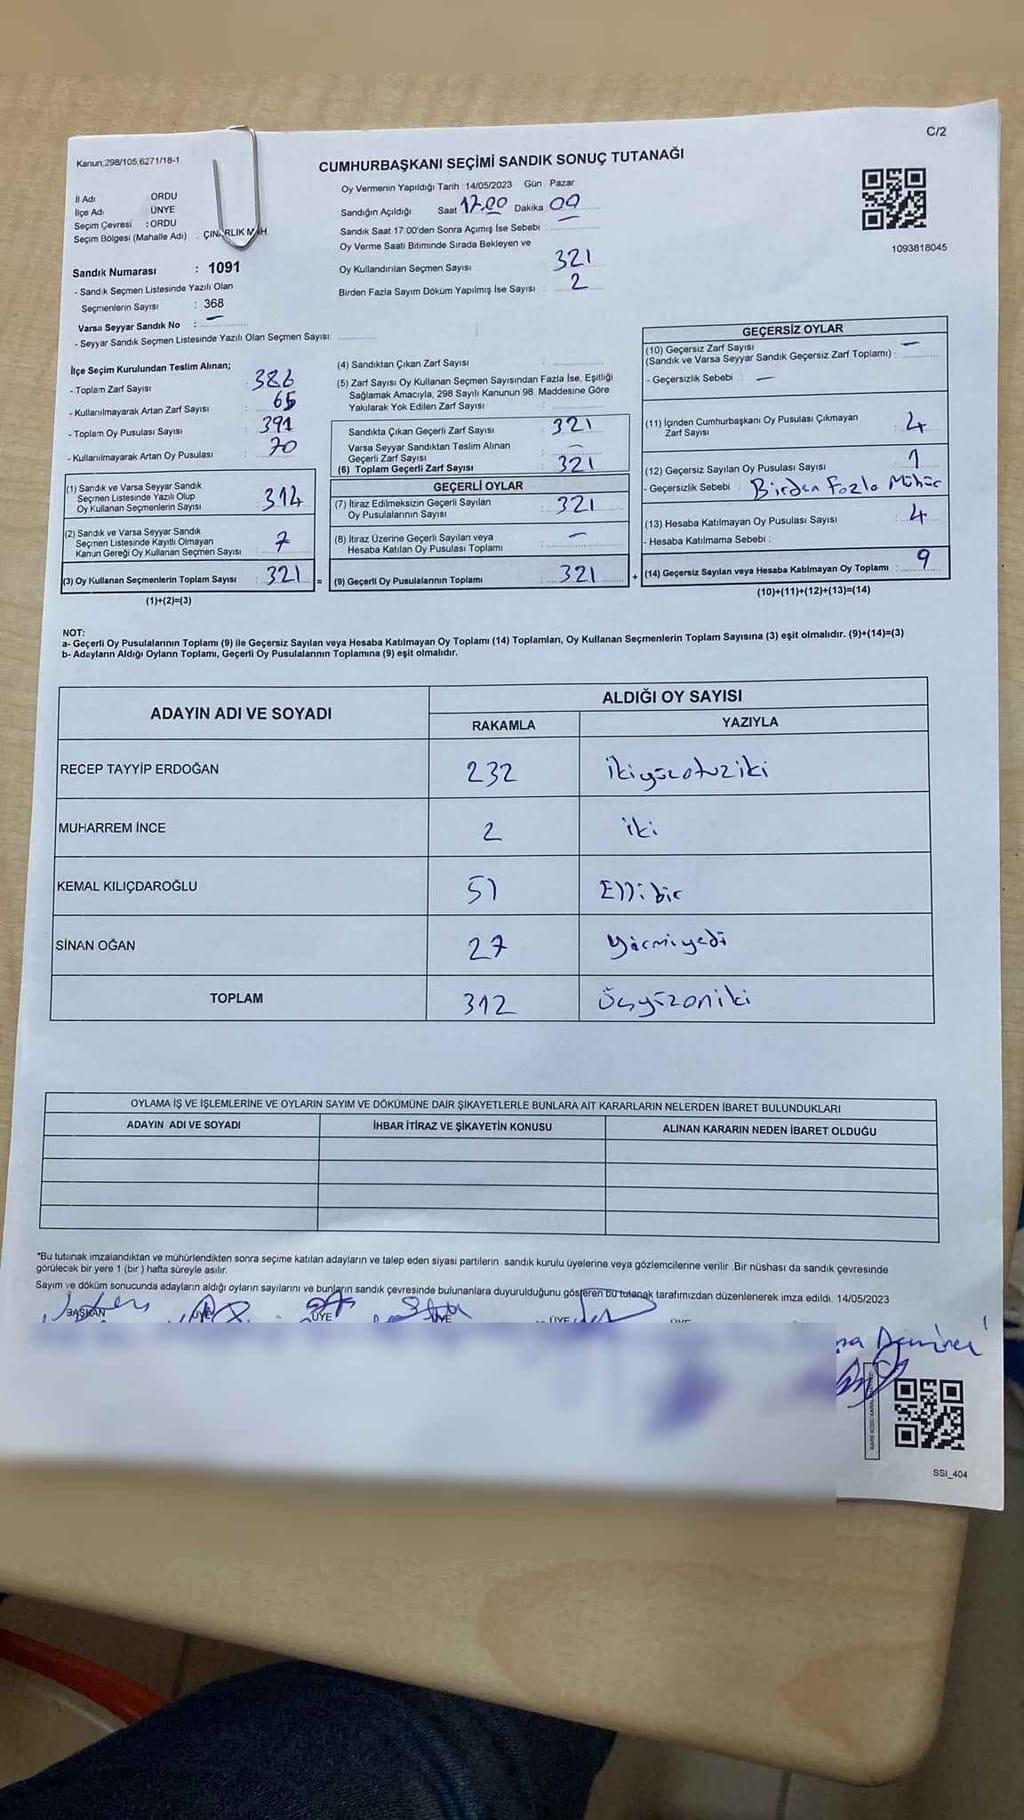 C/2
Kanun,298/105,6271/18-1
CUMHURBAŞKANI SEÇİMİ SANDIK SONUÇ TUTANAĞI
İl Adı ORDU
İlçe Adı ÜNYE
Seçim Çevresi : ORDU
Seçim Bölgesi (Mahalle Adı) : ÇINARLIK MAH.
Sandık Numarası : 1091
- Sandık Seçmen Listesinde Yazılı Olan
Seçmenlerin Sayısı : 368
Varsa Seyyar Sandık No : —
- Seyyar Sandık Seçmen Listesinde Yazılı Olan Seçmen Sayısı:
Oy Vermenin Yapıldığı Tarih :14/05/2023 Gün : Pazar
Sandığın Açıldığı Saat 17.00 Dakika 09
Sandık Saat 17:00'den Sonra Açımış İse Sebebi : —
Oy Verme Saati Bitiminde Sırada Bekleyen ve
Oy Kullandırılan Seçmen Sayısı : 321
Birden Fazla Sayım Döküm Yapılmış İse Sayısı : 2
1093818045
İlçe Seçim Kurulundan Teslim Alınan;
- Toplam Zarf Sayısı : 386
- Kullanılmayarak Artan Zarf Sayısı : 65
- Toplam Oy Pusulası Sayısı : 391
- Kullanılmayarak Artan Oy Pusulası : 70
(1) Sandık ve Varsa Seyyar Sandık
Seçmen Listesinde Yazılı Olup
Oy Kullanan Seçmenlerin Sayısı : 314
(2) Sandık ve Varsa Seyyar Sandık
Seçmen Listesinde Kayıtlı Olmayan
Kanun Gereği Oy Kullanan Seçmen Sayısı : 7
(3) Oy Kullanan Seçmenlerin Toplam Sayısı : 321 =
(1)+(2)=(3)
(4) Sandıktan Çıkan Zarf Sayısı :
(5) Zarf Sayısı Oy Kullanan Seçmen Sayısından Fazla İse, Eşitliği
Sağlamak Amacıyla, 298 Sayılı Kanunun 98. Maddesine Göre
Yakılarak Yok Edilen Zarf Sayısı :
Sandıkta Çıkan Geçerli Zarf Sayısı : 321
Varsa Seyyar Sandıktan Teslim Alınan
Geçerli Zarf Sayısı : —
(6) Toplam Geçerli Zarf Sayısı : 321
GEÇERLİ OYLAR
(7) İtiraz Edilmeksizin Geçerli Sayılan
Oy Pusulalarının Sayısı : 321
(8) İtiraz Üzerine Geçerli Sayılan veya
Hesaba Katılan Oy Pusulası Toplamı : —
(9) Geçerli Oy Pusulalarının Toplamı : 321 +
GEÇERSİZ OYLAR
(10) Geçersiz Zarf Sayısı —
(Sandık ve Varsa Seyyar Sandık Geçersiz Zarf Toplamı) :
- Geçersizlik Sebebi : —
(11) İçinden Cumhurbaşkanı Oy Pusulası Çıkmayan
Zarf Sayısı : 4
(12) Geçersiz Sayılan Oy Pusulası Sayısı : 1
- Geçersizlik Sebebi : Birden Fazla Mühür
(13) Hesaba Katılmayan Oy Pusulası Sayısı : 4
- Hesaba Katılmama Sebebi :
(14) Geçersiz Sayılan veya Hesaba Katılmayan Oy Toplamı : 9
(10)+(11)+(12)+(13)=(14)
NOT:
a- Geçerli Oy Pusulalarının Toplamı (9) ile Geçersiz Sayılan veya Hesaba Katılmayan Oy Toplamı (14) Toplamları, Oy Kullanan Seçmenlerin Toplam Sayısına (3) eşit olmalıdır. (9)+(14)=(3)
b- Adayların Aldığı Oyların Toplamı, Geçerli Oy Pusulalarının Toplamına (9) eşit olmalıdır.
ADAYIN ADI VE SOYADI ALDIĞI OY SAYISI
RAKAMLA YAZIYLA
RECEP TAYYİP ERDOĞAN 232 ikiyüzotuziki
MUHARREM İNCE 2 iki
KEMAL KILIÇDAROĞLU 51 Ellibir
SİNAN OĞAN 27 yirmiyedi
TOPLAM 312 Üçyüzoniki
OYLAMA İŞ VE İŞLEMLERİNE VE OYLARIN SAYIM VE DÖKÜMÜNE DAİR ŞİKAYETLERLE BUNLARA AİT KARARLARIN NELERDEN İBARET BULUNDUKLARI
ADAYIN ADI VE SOYADI İHBAR İTİRAZ VE ŞİKAYETİN KONUSU ALINAN KARARIN NEDEN İBARET OLDUĞU
*Bu tutanak imzalandıktan ve mühürlendikten sonra seçime katılan adayların ve talep eden siyasi partilerin sandık kurulu üyelerine veya gözlemcilerine verilir. Bir nüshası da sandık çevresinde
görülecek bir yere 1 (bir) hafta süreyle asılır.
Sayım ve döküm sonucunda adayların aldığı oyların sayılarını ve bunların sandık çevresinde bulunanlara duyurulduğunu gösteren bu tutanak tarafımızdan düzenlenerek imza edildi. 14/05/2023
BAŞKAN ÜYE ÜYE ÜYE ÜYE ÜYE
SSI_404